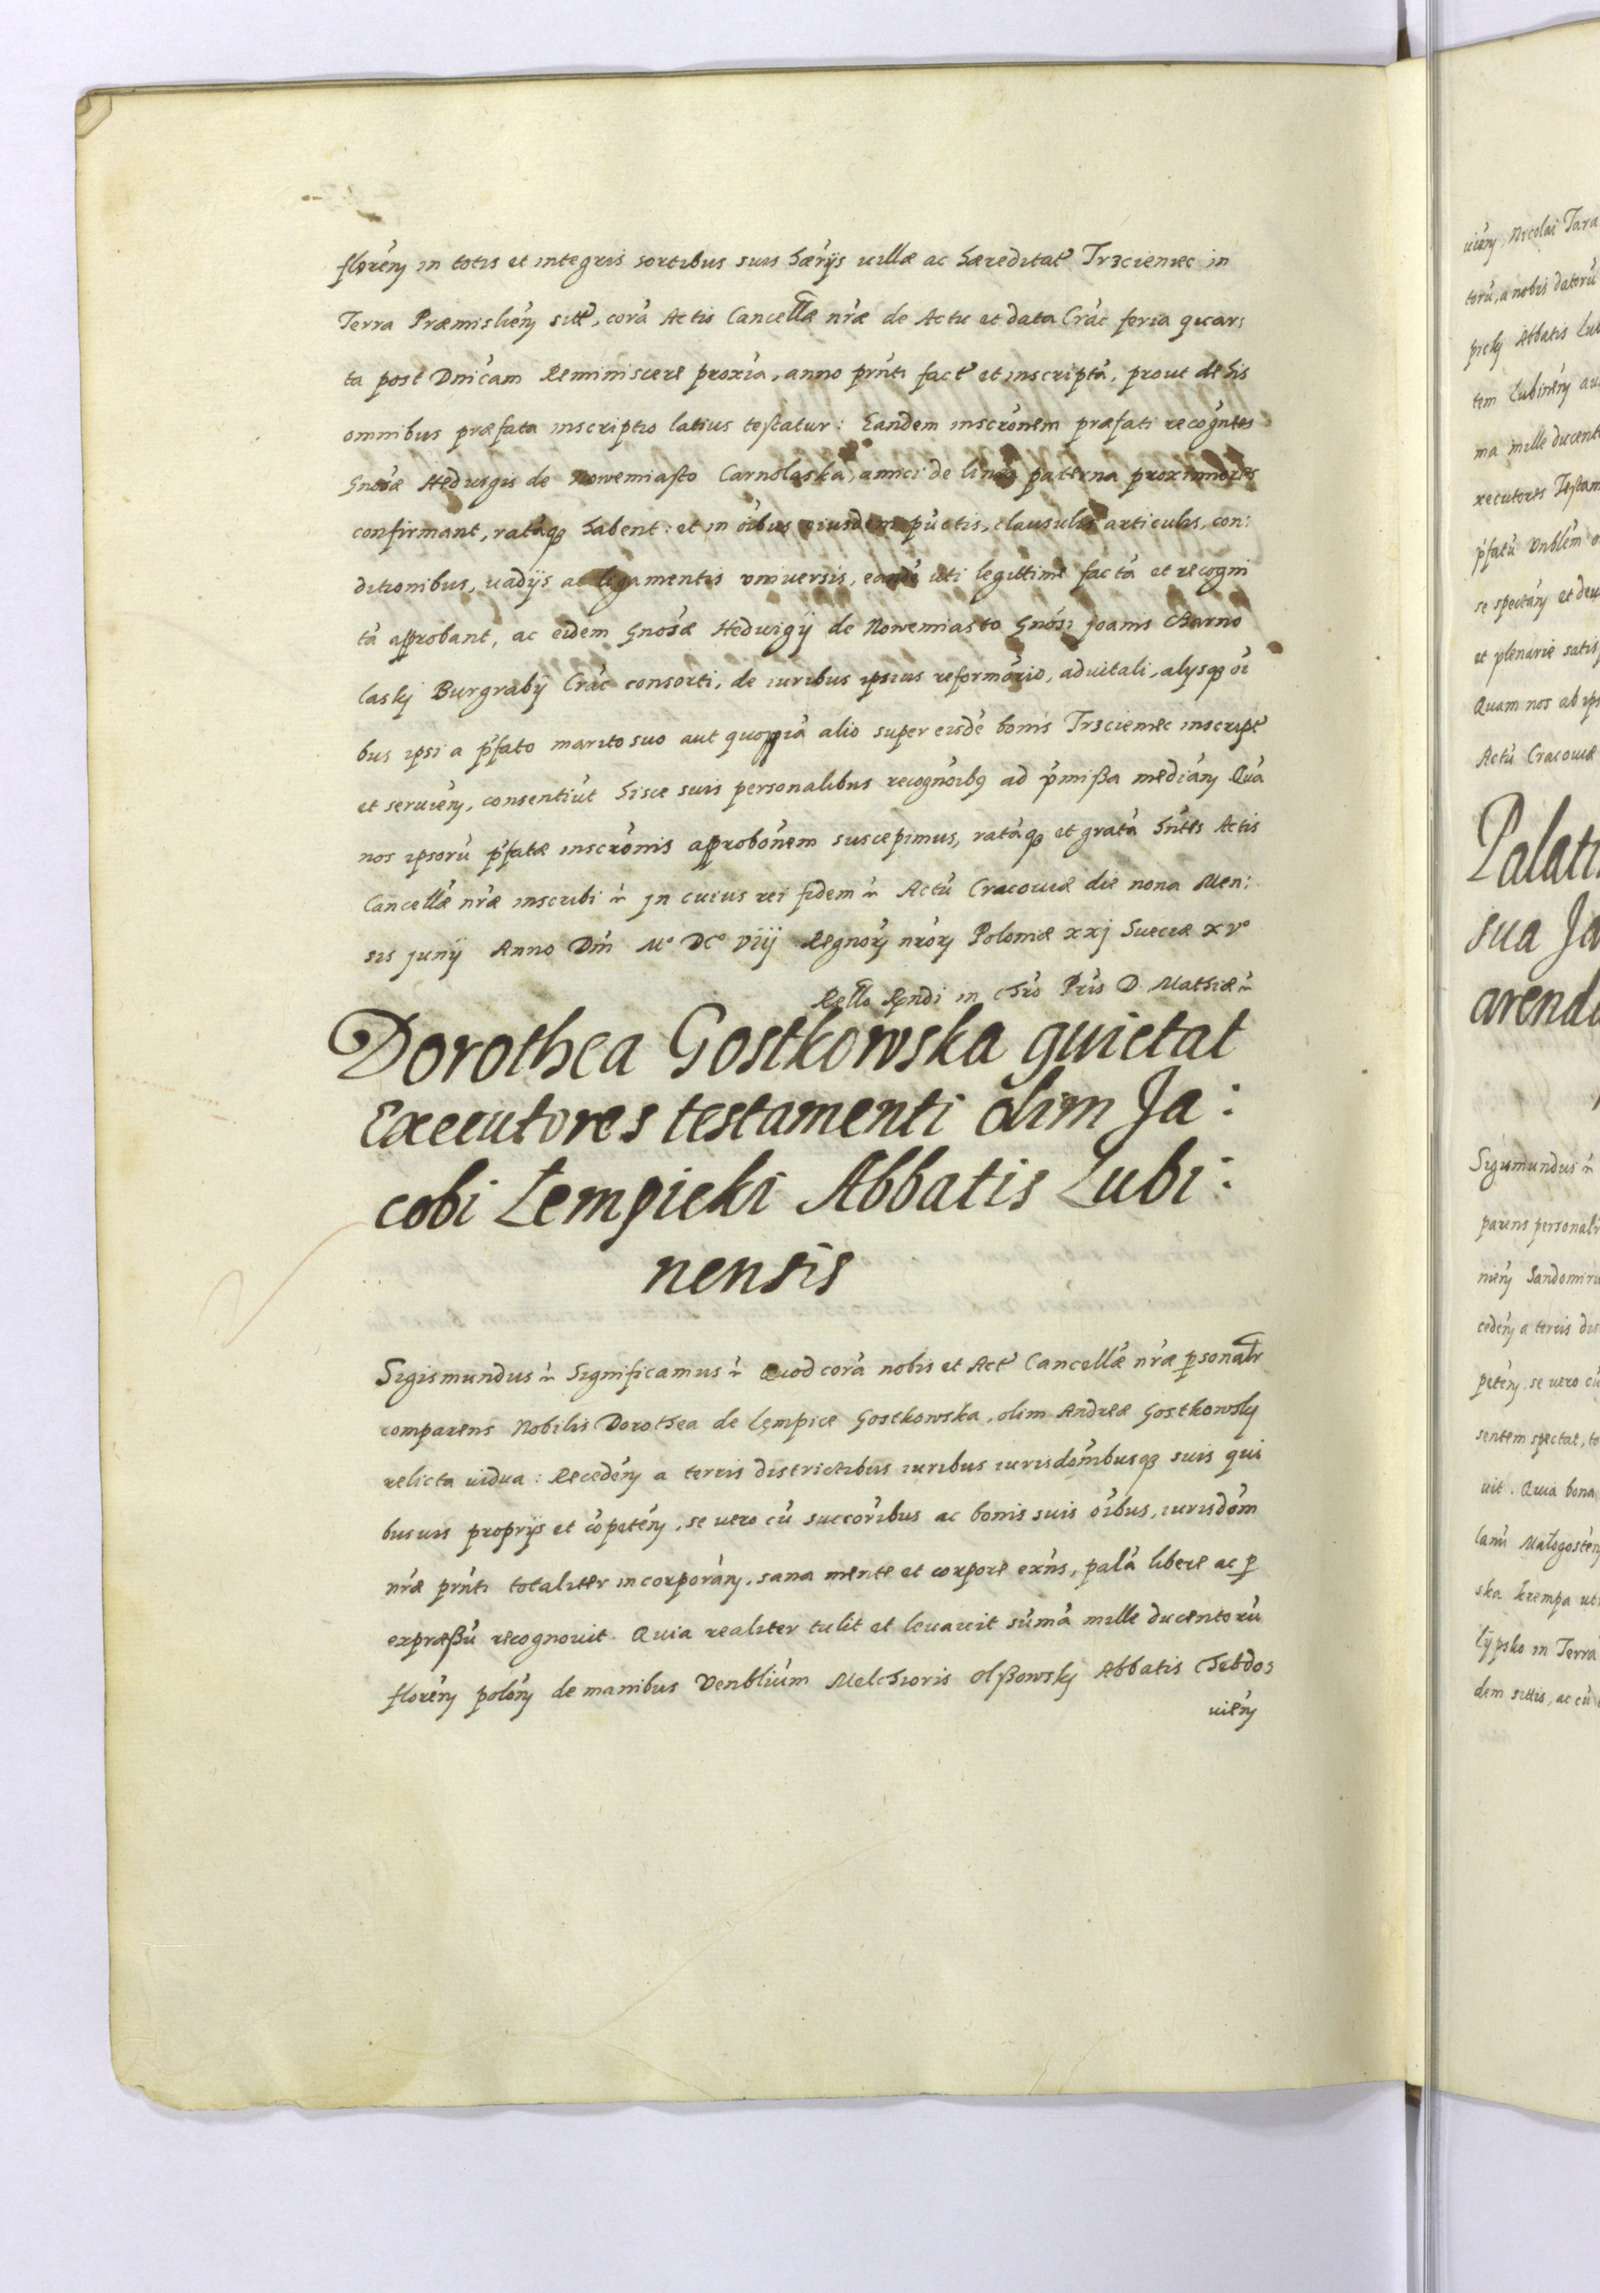 florẽn in totis et integris sortibus suis hærijs uillæ ac hæreditat Trzcieniec in
Terra Præmislien̄ sitt, corã Actis Cancellæ nræ de Actu et data Crac feria quar:
ta post Dnicam Reminiscere proxĩa, anno prñti fact et inscriptã, prout de his
omnibus præfata inscriptio latius testatur: Eandem inscrõnem præfati recogñtes
Gnosæ Heduigis de Nowemiasto Carnolaska, amici de linea paterna proximiores
confirmant, ratãq; habent: et in oĩbus eiusdem pũctis, clausulis articulis, con:
ditionibus, uadijs ac ligamentis vniuersis, eandẽ uti legittime factã et recogni
tã approbant, ac eidem Gnosæ Hedwigij de Nowemiasto Gnosi Joanis Charno
laskj Burgrabij Crac consorti, de iuribus ipsius reformõrio, aduitali, alysq; oĩ
bus ipsi a p̃fato marito suo aut quopiã alio super eisdẽ bonis Trzcieniec inscript
et seruieñ, consentiũt hisce suis personalibus recognõibq ad p̃mißa mediañ Quã
nos ipsorũ p̃fatæ inscrõnis approbõnem suscepimus, ratãq; et gratã hñtes Actis
Cancellæ nræ inscribi &c Jn cuius rei fidem &c Actũ Cracouiæ die nona Men:
sis Junij Anno Dni Mº DCº Viij Regnorũ nrorũ Poloniæ xxj Sueciæ xvº
Rello Rñdi in Chro Pris D. Mathiæ &c
Dorothea Gostkowska quietat
Executores testamenti olim Ja:
cobi Łempicki Abbatis Lubi:
nensis
Sigismundus &c Significamus &c Quod corã nobis et Act Cancellæ nræ personalr
comparens Nobilis Dorothea de Lempice Gostkowska, olim Andreæ Gostkowskj
relicta uidua: Recedeñ a terris districtibus iuribus iurisdõnibusq; suis qui
busuis proprijs et cõpeteñ, se uero cũ succoribus ac bonis suis oĩbus, iurisdõni
nræ prñti totaliter incorporañ, sana mente et corpore exñs, palã libere ac p
expræßũ recognouit. Quia realiter tulit et leuauit sũmã mille ducentorũ
floreñ poloñ de manibus Venbliũm Melchioris Olßowskj Abbatis Chebdo:
uieñ
uieñ, Nicolai Tara
torũ, a nobis datorũ
pickj Abbatis Lub
tem Lubineñ au
ma mille ducent
xecutores Testam
p̃fatũ Vnblem
se spectañ et deu
et plenarie satisf
Quam nos ab ips
Actũ Cracouiæ
Palati
sua Ja
arenda
Sigismundus &c
parens personalr
mieñ Sandomiri
cedeñ a terris dis
peteñ, se uero cũ
sentem spectat, to
uit. Quia bona
lanũ Małogosteñ
ska Krempa uti
Lypsko in Terra
dem sittis, ac cũ